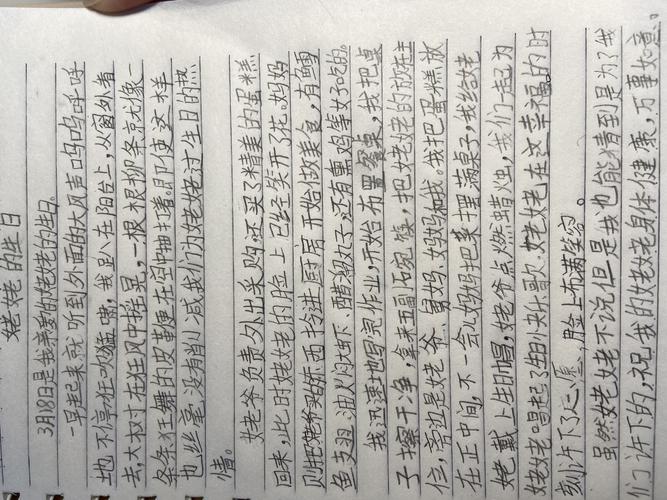 姥姥的生日
3月18日是我亲爱的姥姥的生日。
一早起来就听到外面的大风声呜呜呼呼
地不停狂吹猛啸,我趴在阳台上,从窗外看
去,大树才在狂风中摇晃,一根根柳条京尤像一
条条狂舞的皮革便在空中抽打着即使这样
也丝毫没有削减我们为姥姥过生日的热
情。
姥爷负责外出采购,还买了精美的蛋糕
回来,此时姥姥的脸上已经笑开了花。妈妈
则把姥爷买的东西拎进厨房开始做美食,有鳕
鱼支羽油火闷大虾、醋溜女子,还有熏鸡等好吃的。
我迅速地写完作业,开始布置餐桌,我把桌
子擦干净,拿来五副石宛筷,把姥姥的放在主
位,旁边是姥爷、舅妈、妈妈和我。我把蛋糕放
在正中间,不一会儿妈妈把菜摆满桌子,我给姥
姥戴上生日帽,姥爷点燃蜡烛,我们一起为
姥姥唱起生日快乐歌。姥姥在这幸福的时
刻许下了心愿,脸上布满笑容。
虽然姥姥不说但是我也能猜到是为了我
们许下的,祝我的姥姥身体健康,万事如意。